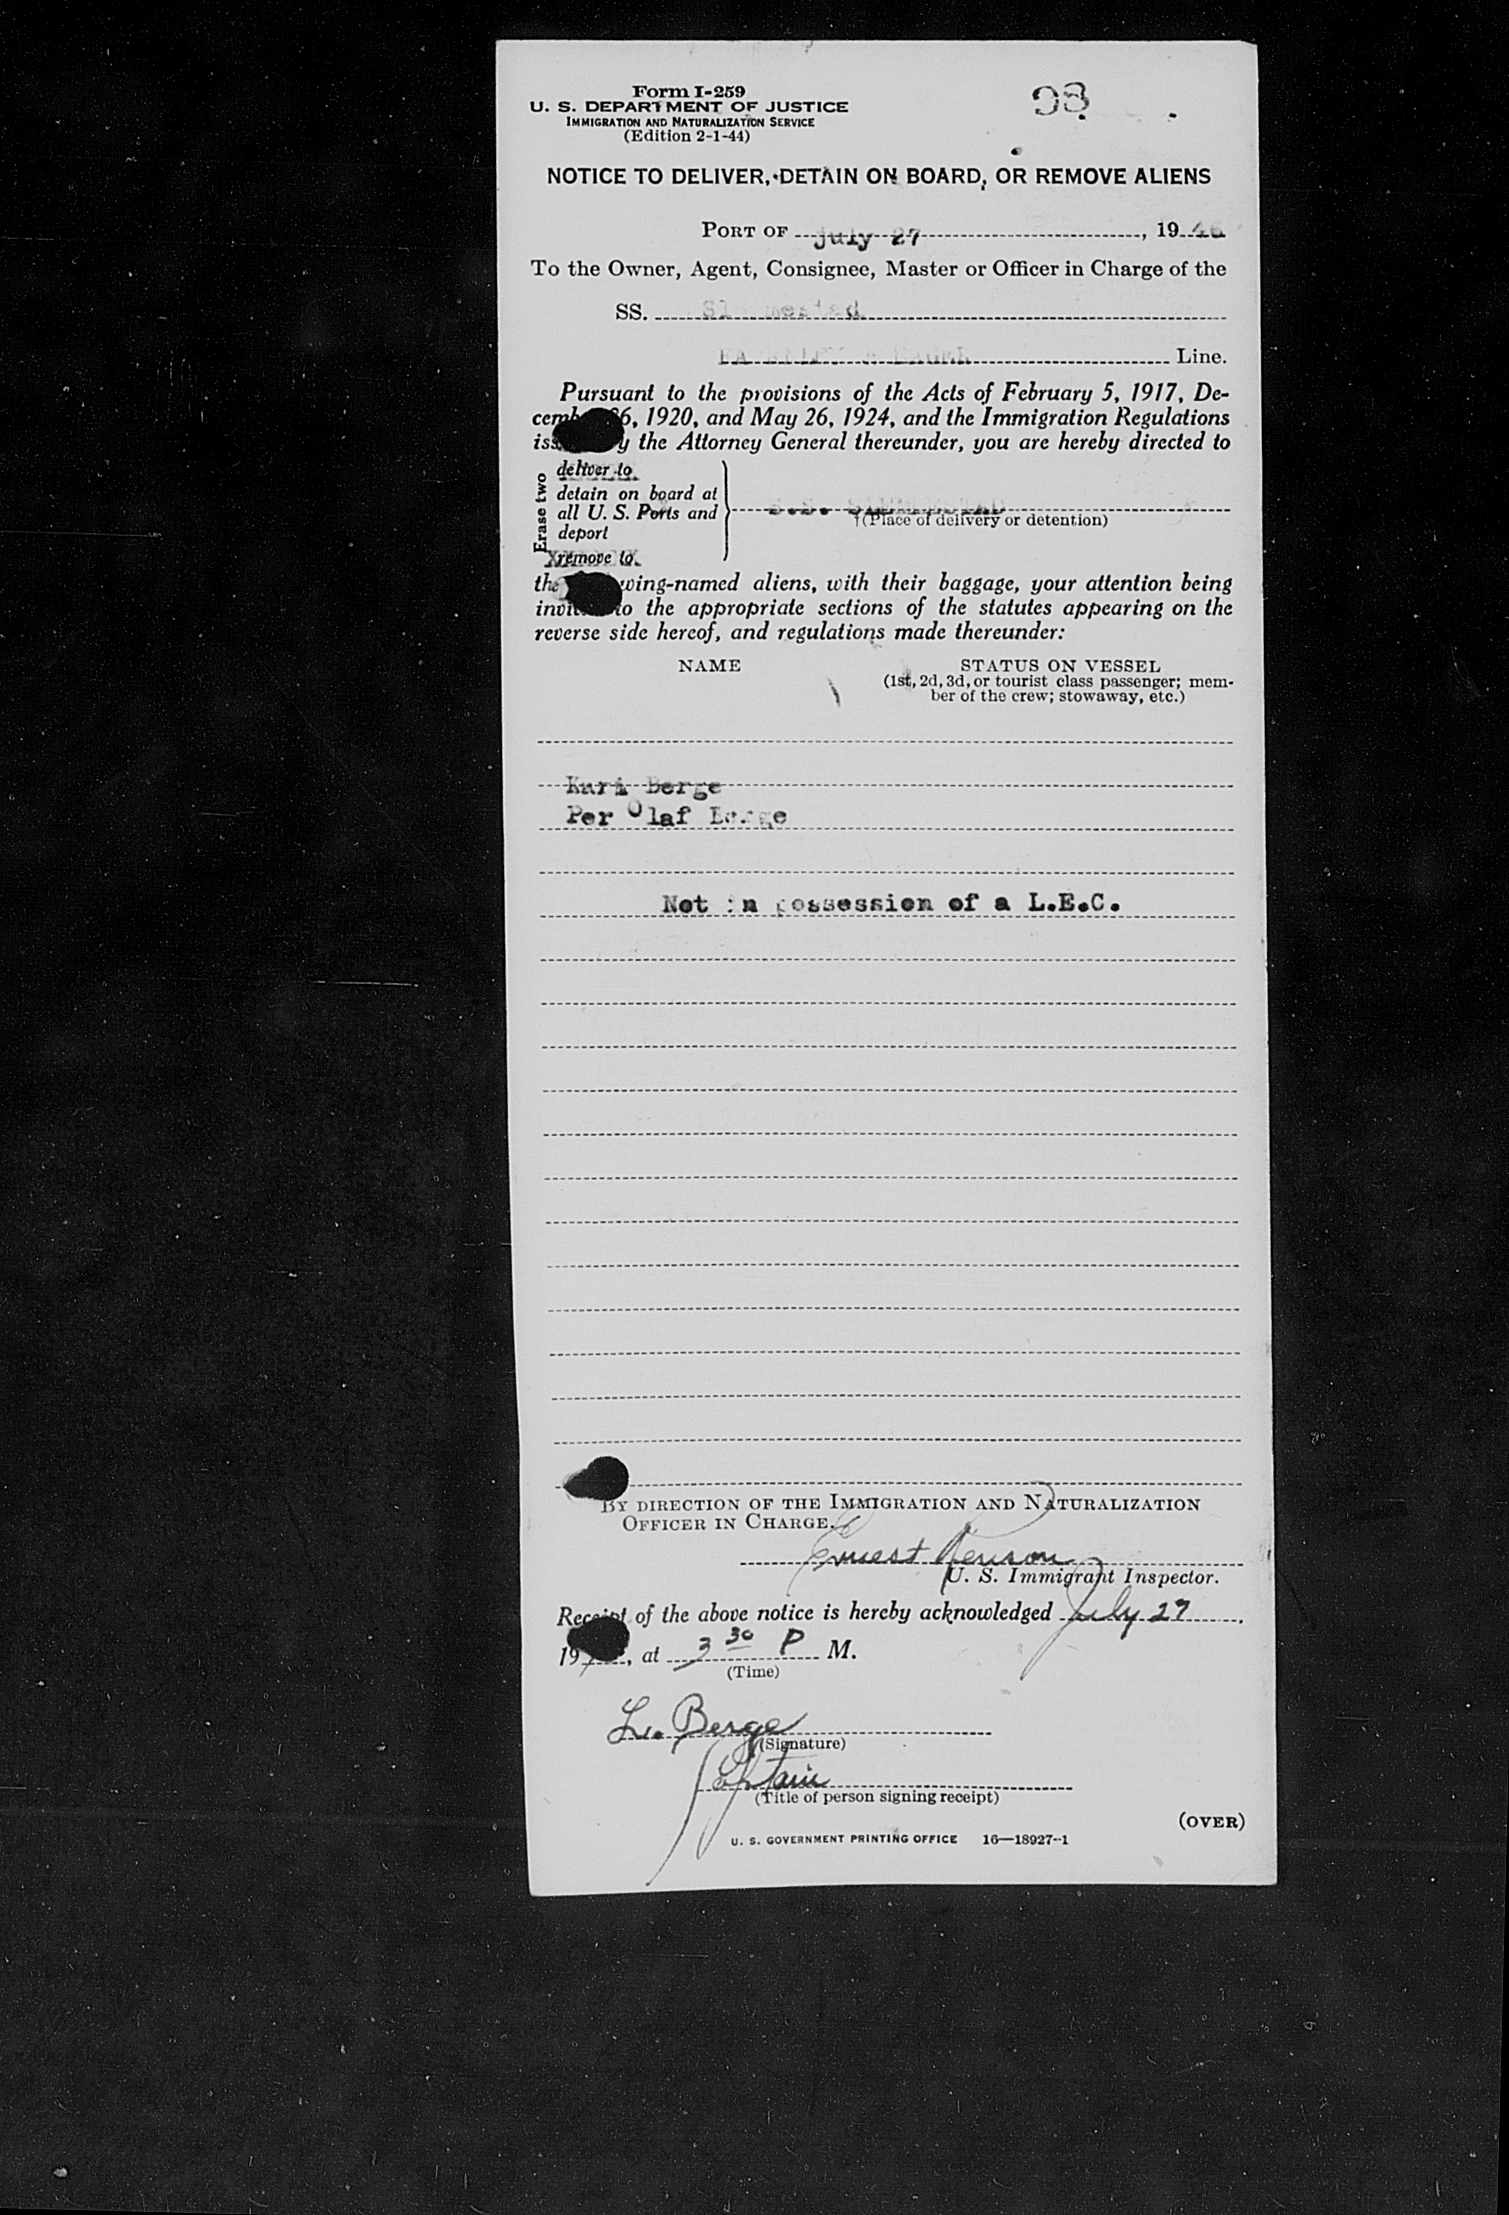 Form I-259
U. S. DEPARTMENT OF JUSTICE
IMMIGRATION AND NATURALIZATION SERVICE
(Edition 2-1-44)
98
NOTICE TO DELIVER, DETAIN ON BOARD, OR REMOVE ALIENS
PORT OF July 27, 1946
To the Owner, Agent, Consignee, Master or Officer in Charge of the
SS.
Line.
Pursuant to the provisions of the Acts of February 5, 1917, De-
26, 1920, and May 26, 1924, and the Immigration Regulations
by the Attorney General thereunder, you are hereby directed to
Erase two
deliver to
detain on board at
all U. S. Ports and
deport
remove to
S.S.
(Place of delivery or detention)
the following-named aliens, with their baggage, your attention being
to the appropriate sections of the statutes appearing on the
reverse side hereof, and regulations made thereunder:
NAME
STATUS ON VESSEL
(1st, 2d, 3d, or tourist class passenger; mem-
ber of the crew; stowaway, etc.)
Kari Berge
Per Olaf Berge
Not in possession of a L.E.C.
BY DIRECTION OF THE IMMIGRATION AND NATURALIZATION
OFFICER IN CHARGE.
Ernest
U. S. Immigrant Inspector.
Receipt of the above notice is hereby acknowledged July 27,
19, at 3 30 P M.
(Time)
L. Berge
(Signature)
Captain
(Title of person signing receipt)
(OVER)
U. S. GOVERNMENT PRINTING OFFICE 16—18927-1